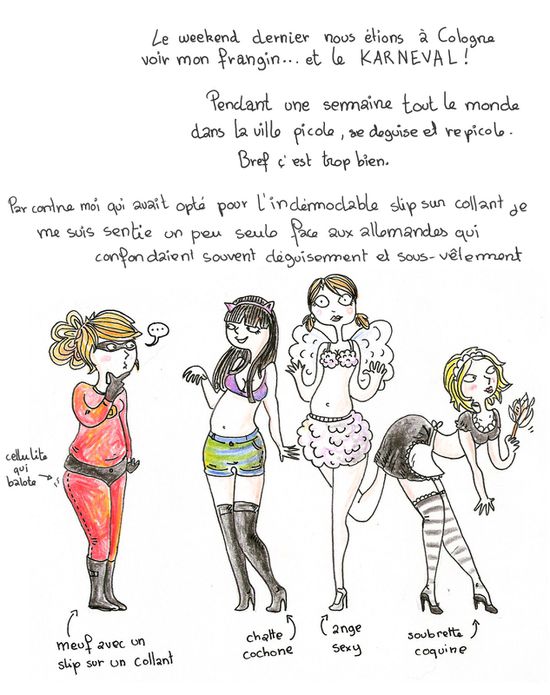 Le weekend dernier nous étions à Cologne
voir mon frangin... et le KARNEVAL!
Pendant une semaine tout le monde
dans la ville picole, se deguise et repicole.
Bref ç'est trop bien.
Par contre moi qui avait opté pour l'indémodable slip sur collant je
me suis sentie un peu seule face aux allemandes qui
confondaient souvent déguisement et sous-vêtement
...
cellulite
qui
balote
meuf avec un
slip sur un collant
chatte
cochone
ange
sexy
soubrette
coquine